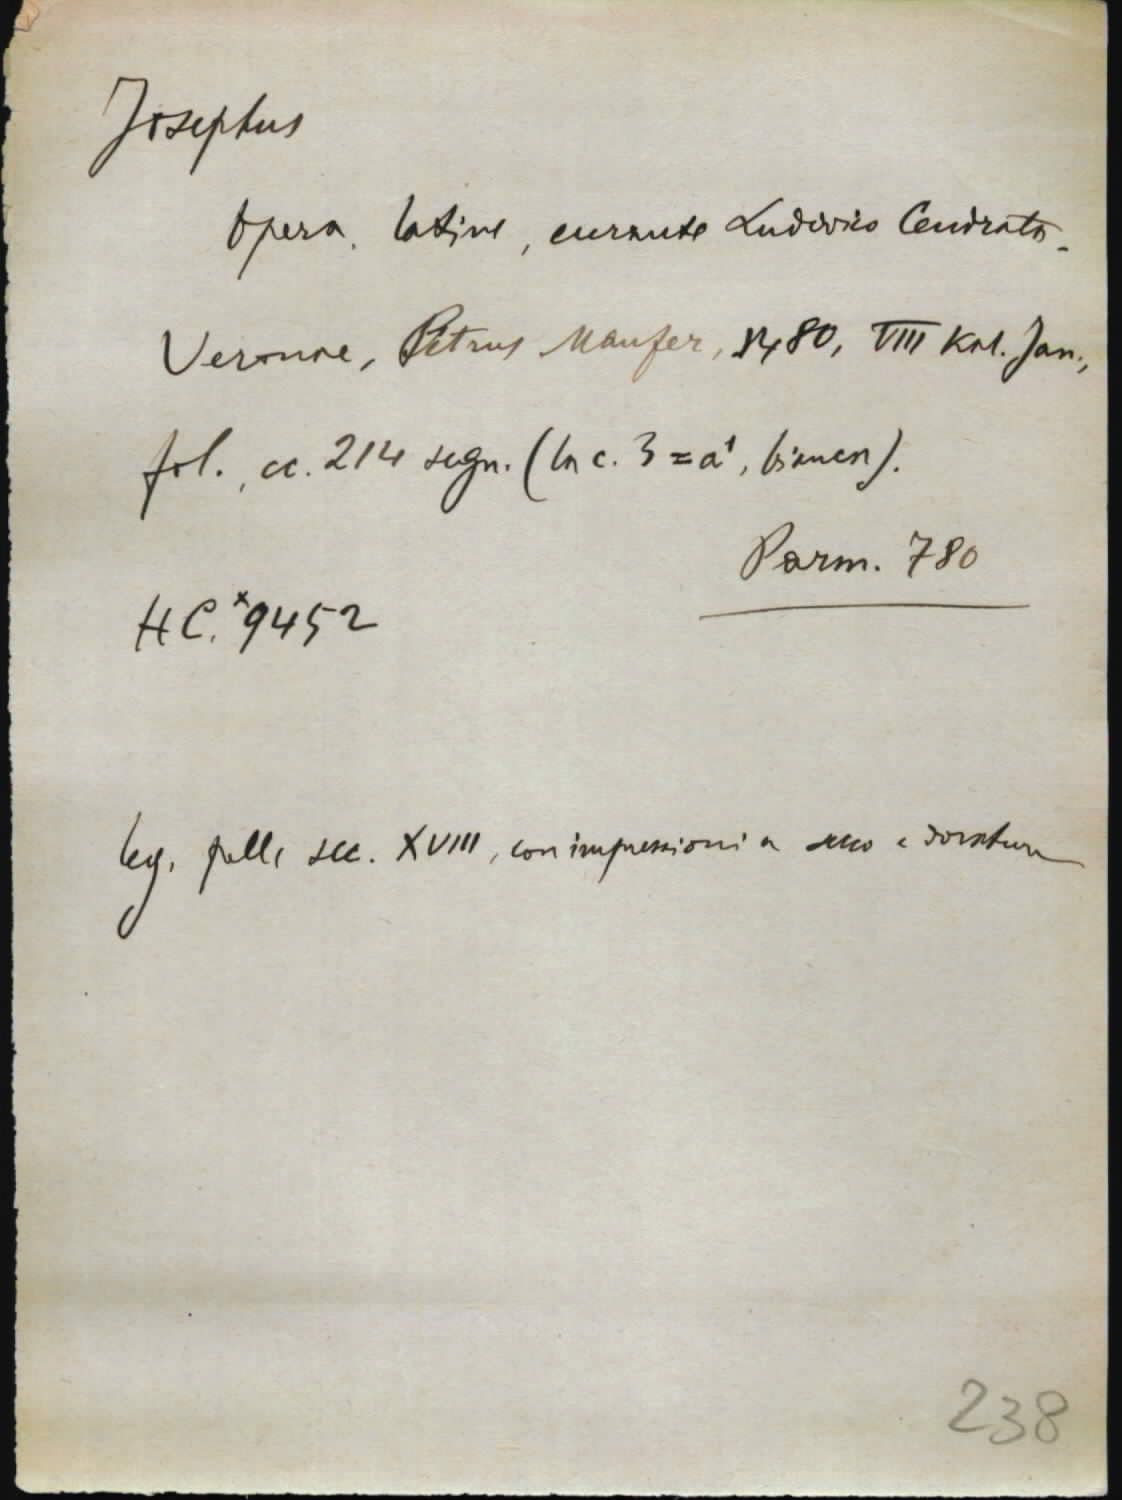 Josephus
Opera. latine, curante Ludovico Cendrato.
Veronae, Petrus Maufer, 1480, VIII Kal. Jan.,
fol., cc. 214 segn. (la c. 3 = a¹, bianca).
Parm. 780
HC.*9452
leg. pelle sec. XVIII, con impressioni a secco e dorature
238